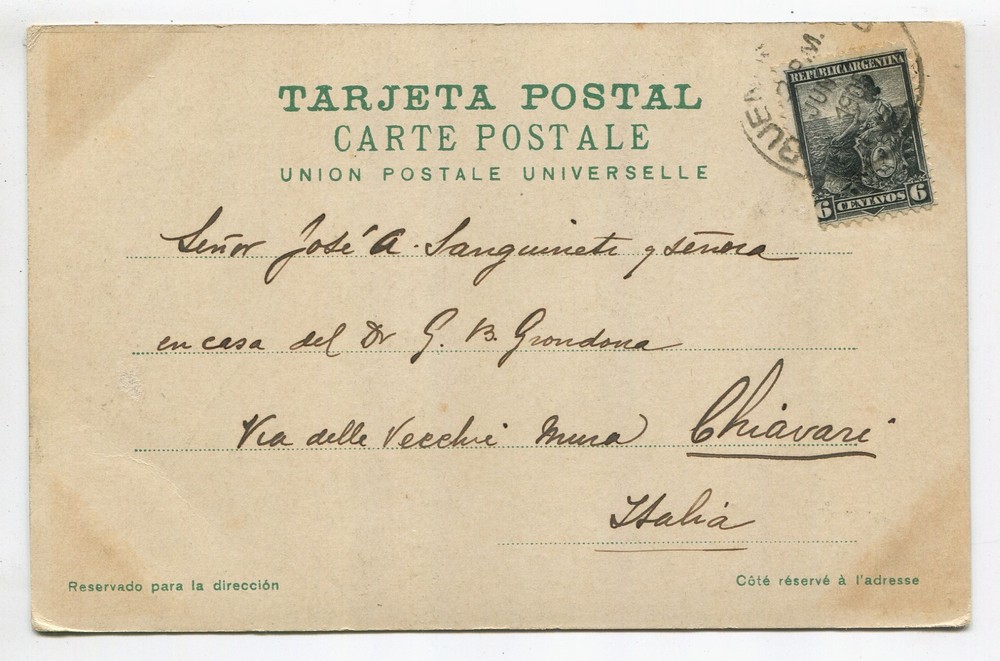 TARJETA POSTAL
CARTE POSTALE
UNION POSTALE UNIVERSELLE
REPÚBLICA ARGENTINA
6 CENTAVOS 6
Señor José A. Sanguineti y señora
en casa del Dr G. B. Grondona
Via delle Vecchie Mura Chiavari
Italia
Reservado para la dirección
Côté réservé à l'adresse